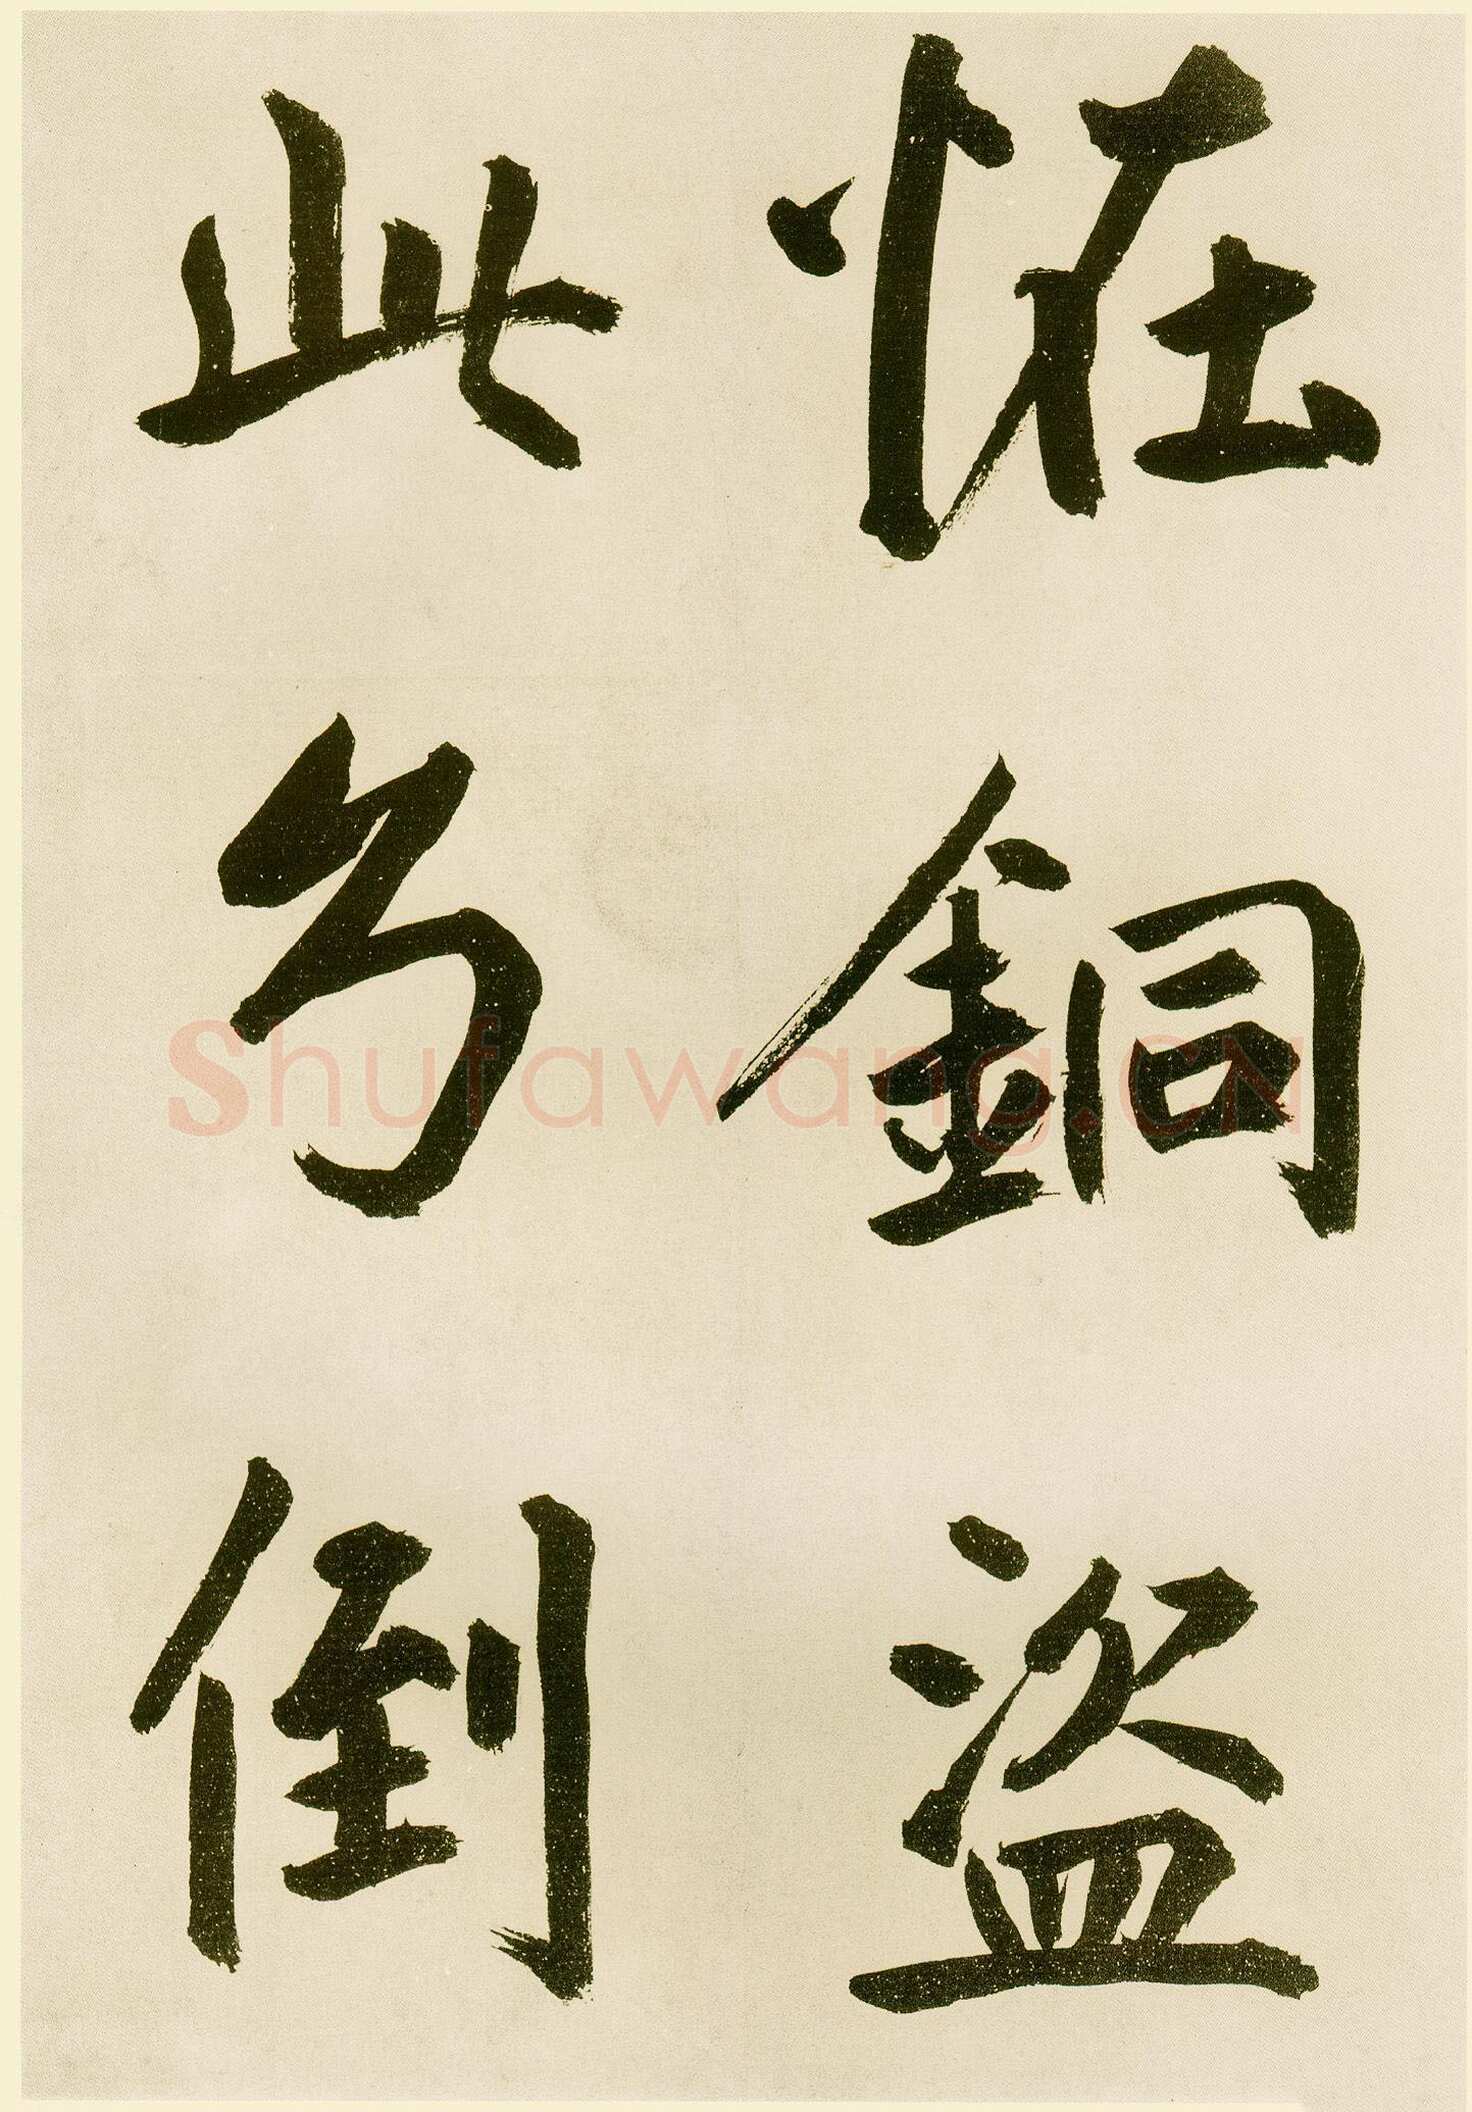 恠銅盜
此多倒
Shufawang.CN